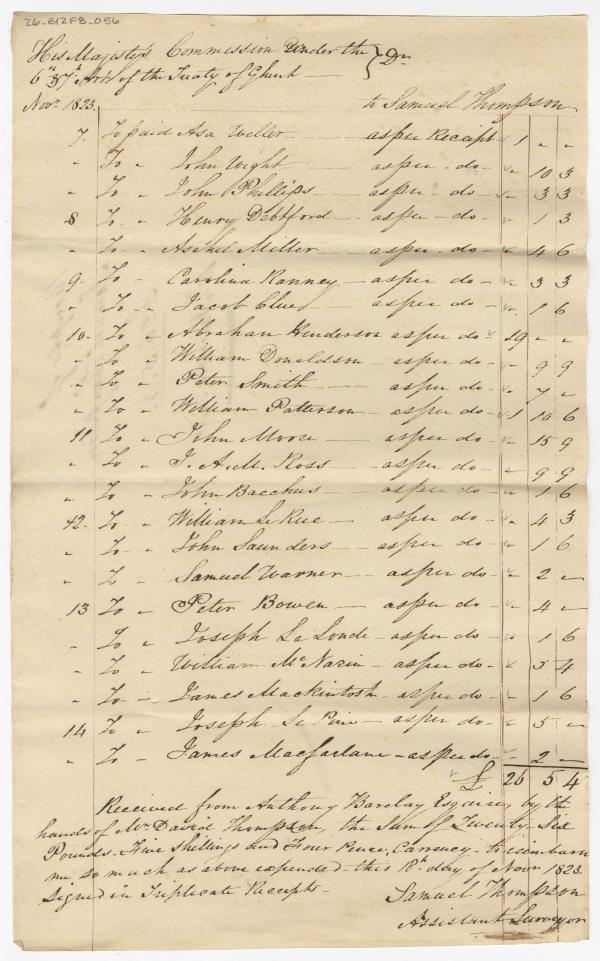 26-B12F8-056
His Majesty's Commission Under the } Dr
6th & 7th Arts of the Treaty of Ghent
Novr. 1823. to Samuel Thompson
7. To paid Asa Weller as per Receipt 1 " "
" To " John Wight as per do " 10 3
" To " John Phillips as per do " 3 3
8 To " Henry Debtford as per do " 1 3
" To " Ashel Miller as per do " 4 6
9 To " Carolina Ranney as per do " 3 3
" To " Jacob Clue as per do " 1 6
10 To " Abraham Henderson as per do 19 " "
" To " William Donaldson as per do " 9 9
" To " Peter Smith as per do " 7 "
" To " William Patterson as per do 1 10 6
11 To " John Moore as per do " 15 9
" To " J. A. M. Ross as per do " 9 9
" To " John Bacchus as per do " 1 6
12 To " William Le Rue as per do " 4 3
" To " John Saunders as per do " 1 6
" To " Samuel Warner as per do " 2 "
13 To " Peter Bowen as per do " 4 "
" To " Joseph La Londe as per do " 1 6
" To " William McNarin as per do " 5 4
" To " James Mackintosh as per do " 1 6
14 To " Joseph Le Pine as per do " 5 "
" To " James Macfarlane as per do " 2 "
£ 26 5 4
Received from Anthony Barclay Esquire, by the
hands of Mr. David Thompson, the Sum of Twenty Six
Pounds Five Shillings and Four Pence, Currency to reimburse
me so much as above expended this 18th day of Novr 1823.
Signed in Triplicate Receipts
Samuel Thompson
Assistant Surveyor